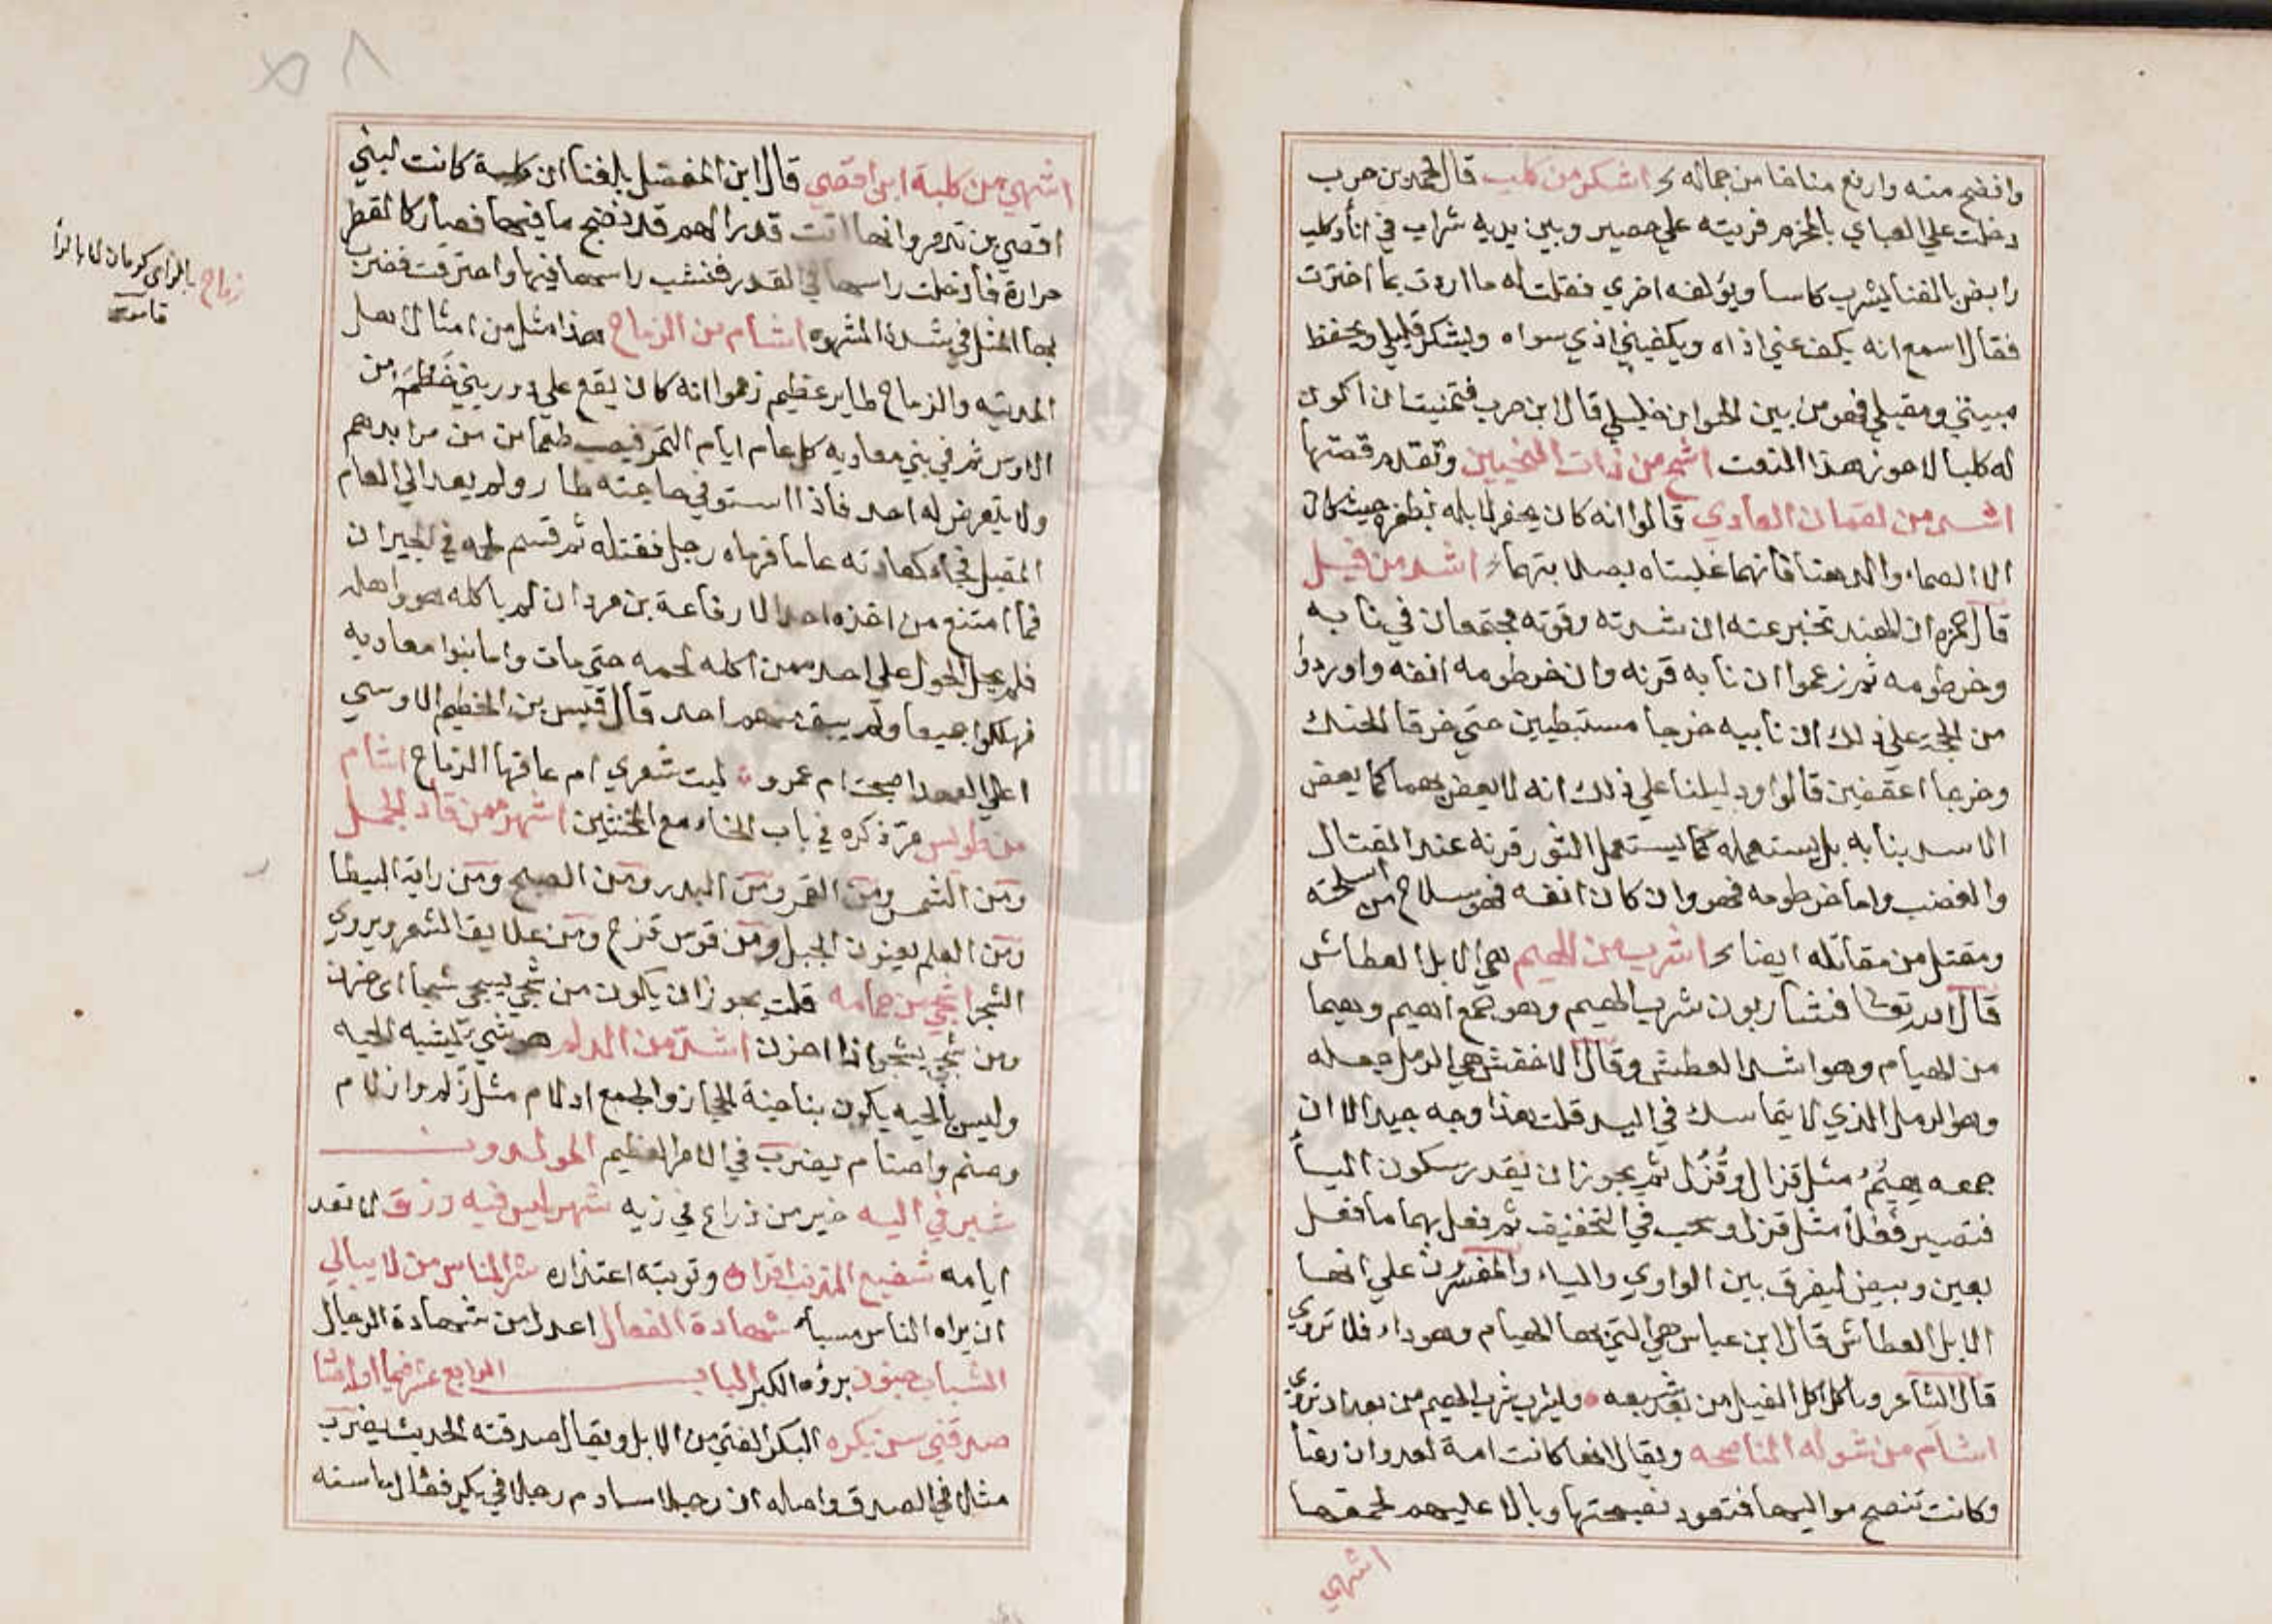 وافضح منه وارفع مناخا من جماله اشكر من كلب قال محمد بن حرب
دخلت علي العبابي بالمخرم فريته علي حصير وبين يديه شراب في انا وكلب
رابض بالفنا يشرب كاسا ويولغه اخري فقلت له ما اردت بما اخترت
فقال اسمع انه يكف عني اذاه ويكفيني اذي سواه ويشكر قليلي ويحفظ
مبيتي ومقيلي فهو من بين الحيوان خليلي قال ابن حرب فتمنيت ان اكون
له كلبا لاحوز هذا النعت اشح من ذات النحيين وتقدم قصتها
اشد من لقمان العادي قالوا انه كان يحفر لابله بظفره حيث كان
الا الصماء والدهنا فانهما غلبتاه بصلابتهما اشد من فيل
قال حمزه ان الهند تخبر عنه ان شدته وقوته مجتمعان في نابه
وخرطومه ثم زعموا ان نابه قرنه وان خرطومه انفه واوردوا
من الحجة علي ذلك ان نابيه خرجا مستبطنين حتي خرقا الحنك
وخرجا اعقفين قالوا ودليلنا علي ذلك انه لا يعض بهما كما يعض
الاسد بنابه بل يستعمله كما يستعمل الثور قرنه عند القتال
والغضب واما خرطومه فهو وان كان انفه فهو سلاح من اسلحته
ومقتل من مقاتله ايضا اشرب من الهيم هي الابل العطاش
قال الله تعالي فشاربون شرب الهيم وهو جمع اهيم وهيما
من الهيام وهو اشد العطش وقال الاخفش هي الرمل جعله
وهو الرمل الذي لا يتماسك في اليد قلت هذا وجه جيد الا ان
جمعه هيم مثل قزال وقزل ثم يجوز ان يقدر سكون اليا
فتصير فعلا مثل قزل وسحب في التخفيف ثم فعل بهما ما فعل
بعين وبيض ليفرق بين الواوي والياء والمفسرون علي انها
الابل العطاش قال ابن عباس هي التي بها الهيام وهو داء فلا تروي
قال الشاعر وياكل اكل الفيل من بعد شبعه ويشرب شرب الهيم من بعد ان تروي
اشام من شوله الناصحه ويقال انها كانت امة لعدوان رعنا
وكانت تنصح مواليها فتعود نصيحتها وبالا عليهم لحمقها
اشهي
٥٨
اشهي من كلبة ابن اقصي قال ابن المفضل بلغنا ان كلبة كانت لبني
اقصي بن تدمر وانها اتت قدرا لهم قد نضج ما فيها فصار كالقطر
حرارة فادخلت راسها في القدر فنشب راسها فيها واحترقت فضرب
بها المثل في شدة الشهوه اشام من الزماح هذا مثل من امثال اهل
المدينه والزماح طاير عظيم زعموا انه كان يقع علي دور بني خطمة من
الاوس ثم في بني معاويه كل عام ايام التمر فيصيب طعما من مرابدهم
ولا يتعرض له احد فاذا استوفي حاجته طار ولم يعد الي العام
المقبل فجاء كعادته عاما فرماه رجل فقتله ثم قسم لحمه في الجيران
فما امتنع من اخذه احد الا رفاعة بن مردان لم ياكله هو واهله
فلم يحل الحول علي احد ممن اكله لحمه حتي مات واما بنوا معاويه
فهلكوا جميعا ولم يبق منهم احد قال قيس بن الخطيم الاوسي
اعلي العهد اصبحت ام عمرو ليت شعري ام عاقها الزماح اشام
من طويس مر ذكره في باب الخاء مع المخنثين اشهر ممن قاد الجمل
ومن الشمس ومن القمر ومن البدر ومن الصبح ومن راية البيطا
ومن العلم يعنون الجبل ومن قوس قزح ومن علايق الشعر ويروي
الشجر اشجي من حمامه قلت يجوز ان يكون من شجي يشجي شجا اي حزن
ومن شجي يشجو اذا احزن اشد من الدلم هو شي يشبه الحيه
وليس بالحيه يكون بناحية الحجاز والجمع ادلام مثل زلم وازلام
وصنم واصنام يضرب في الامر العظيم المولدون
شبر في اليه خير من ذراع في زيه شهر ليس فيه رزق لا تعد
ايامه شفيع المذنب اقراره وتوبته اعتذاره شر الناس من لا يبالي
ان يراه الناس مسيا شهادة الفعال اعدل من شهادة الرجال
الشباب جنون بروه الكبر الباب الرابع عشر فيما اوله صا
صدقني سن بكره البكر الفتي من الابل ويقال صدقته الحديث يضرب
مثلا في الصدق واصله ان رجلا ساوم رجلا في بكر فقال ما سنه
زماح بالزاي كرمان لا بالرا
قاموس